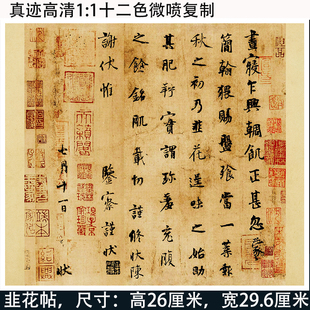 真迹高清1:1十二色微喷复制
晝寢乍興輖飢正甚忽蒙
簡翰猥賜盤飧當一葉報
秋之初乃韭花逞味之始助
其肥羜實謂珍羞充腹
之餘銘肌載切謹修狀陳
謝伏惟
鑒察謹狀
七月十一日 狀
韭花帖，尺寸：高26厘米，宽29.6厘米